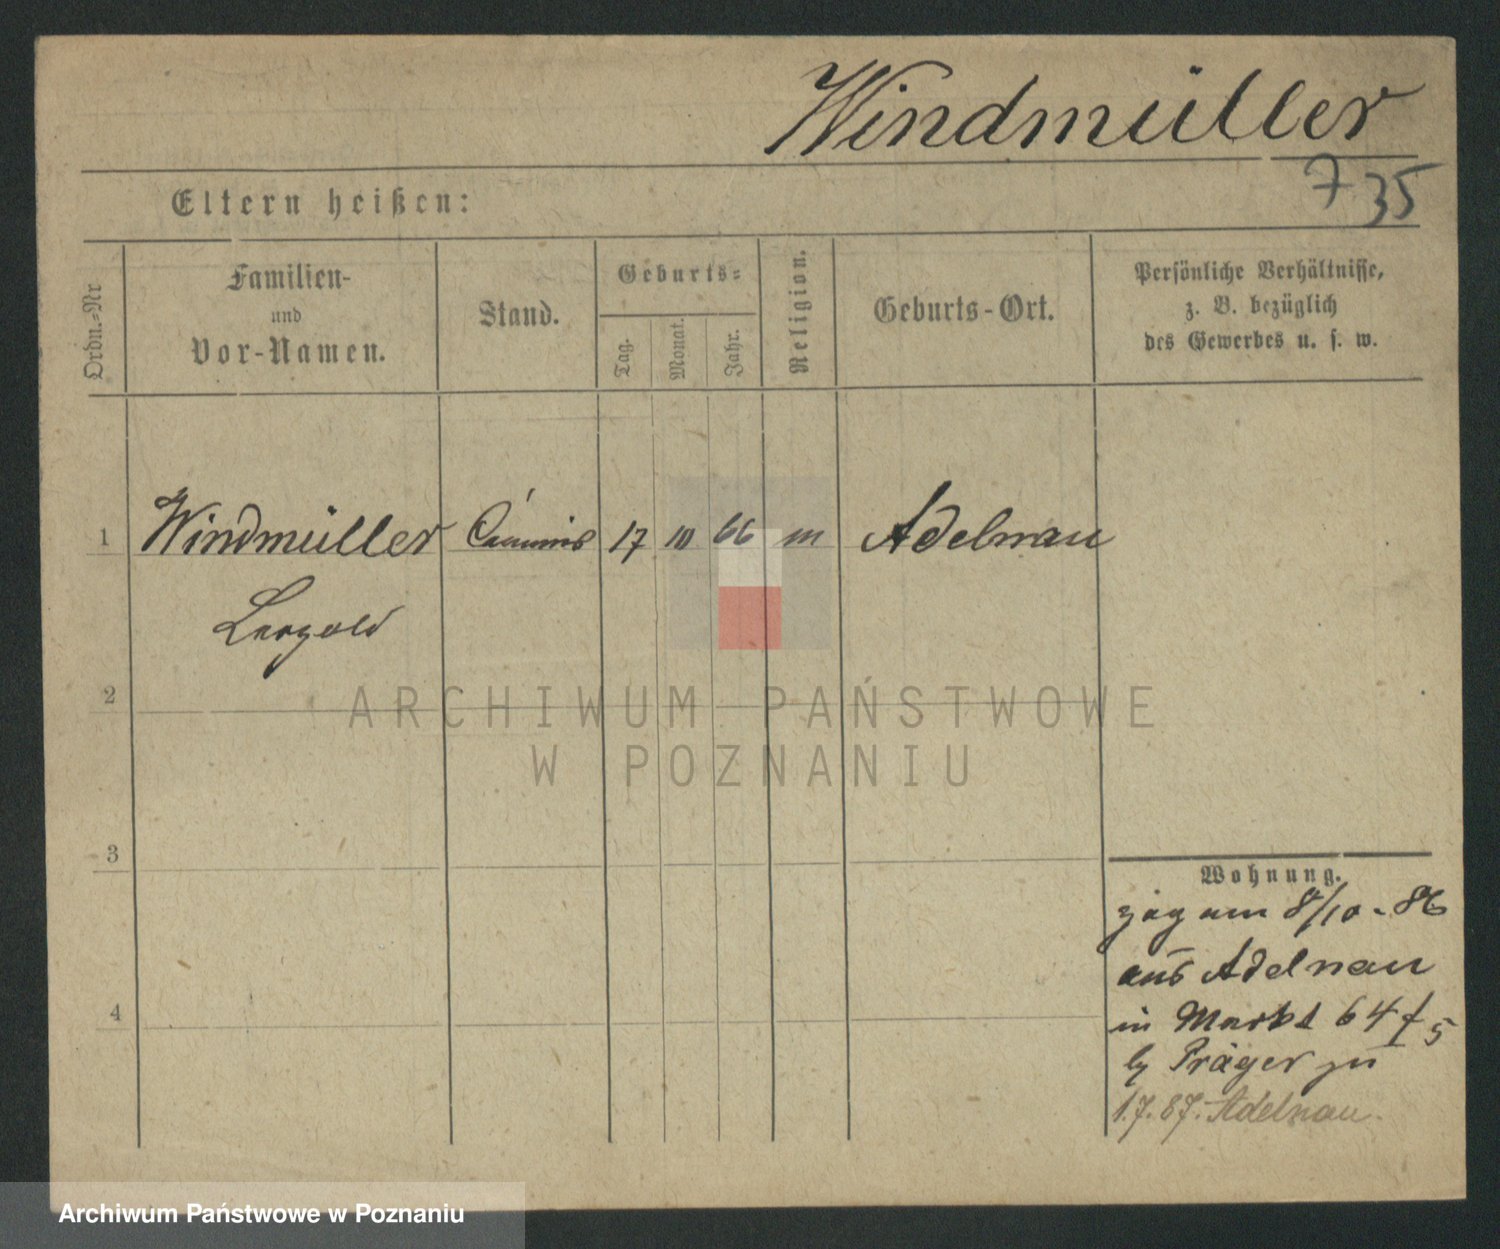 Windmüller
735
Eltern heißen:
Ordn.-Nr
Familien-
und
Vor-Namen.
Stand.
Geburts-
Tag.
Monat.
Jahr.
Religion.
Geburts-Ort.
Persönliche Verhältnisse,
z. B. bezüglich
des Gewerbes u. s. w.
1 Windmüller Commis 17 10 66 m Adelnau
Leopold
2
3
4
Wohnung.
zog am 8/10.86
aus Adelnau
in Markt 64
Präger zu
1.7.87. Adelnau.
ARCHIWUM PAŃSTWOWE
W POZNANIU
Archiwum Państwowe w Poznaniu